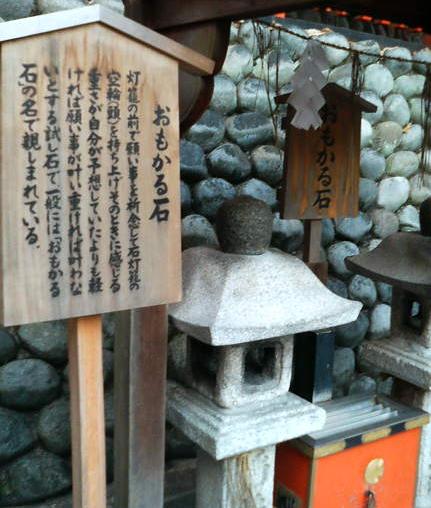 おもかる石
灯籠の前で願い事を祈念して石灯籠の
空輪(頭)を持ち上げそのときに感じる
重さが自分が予想していたよりも軽
ければ願い事が叶い重ければ叶わな
いとする試し石で一般には「おもかる
石の名で親しまれている。
おもかる石